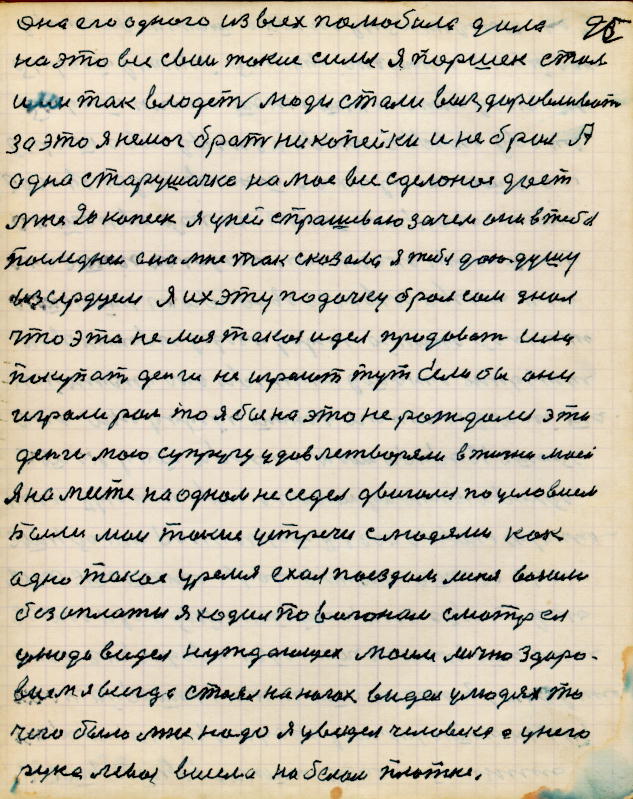 она его одного из всех полюбила дила 95
на это все свои такие силы Я Поршек стал
ими так влодеть люди стали выздоровливать
за это я немог брать никопейки и не брал А
одна старушачка на мое все сделоное дает
мне 20 копеек я уней страшиваю зачем они в тебя
последнеи она мне так сказала, я тебе даю душу
из сердуем Я их эту подачку брал сам знал
что эта не моя такая идея продовать или
покупать денги не играют тут Если бы они
играли рал то я бы на это не рождался эти
денги мою супругу удовлетворяли в жизни моей
Я на месте на одном не седел двигался по условием
Были мои такие устречи с людями как
адно такое уремя ехал поездом меня возили
без оплаты я ходил По вагонам смотрел
у люде видел нуждающех моим лично здоро-
вием я всегда стоял на ногах видел улюдях то
чего было мне надо я увидел человека а унего
рука левая висела на белом платке.